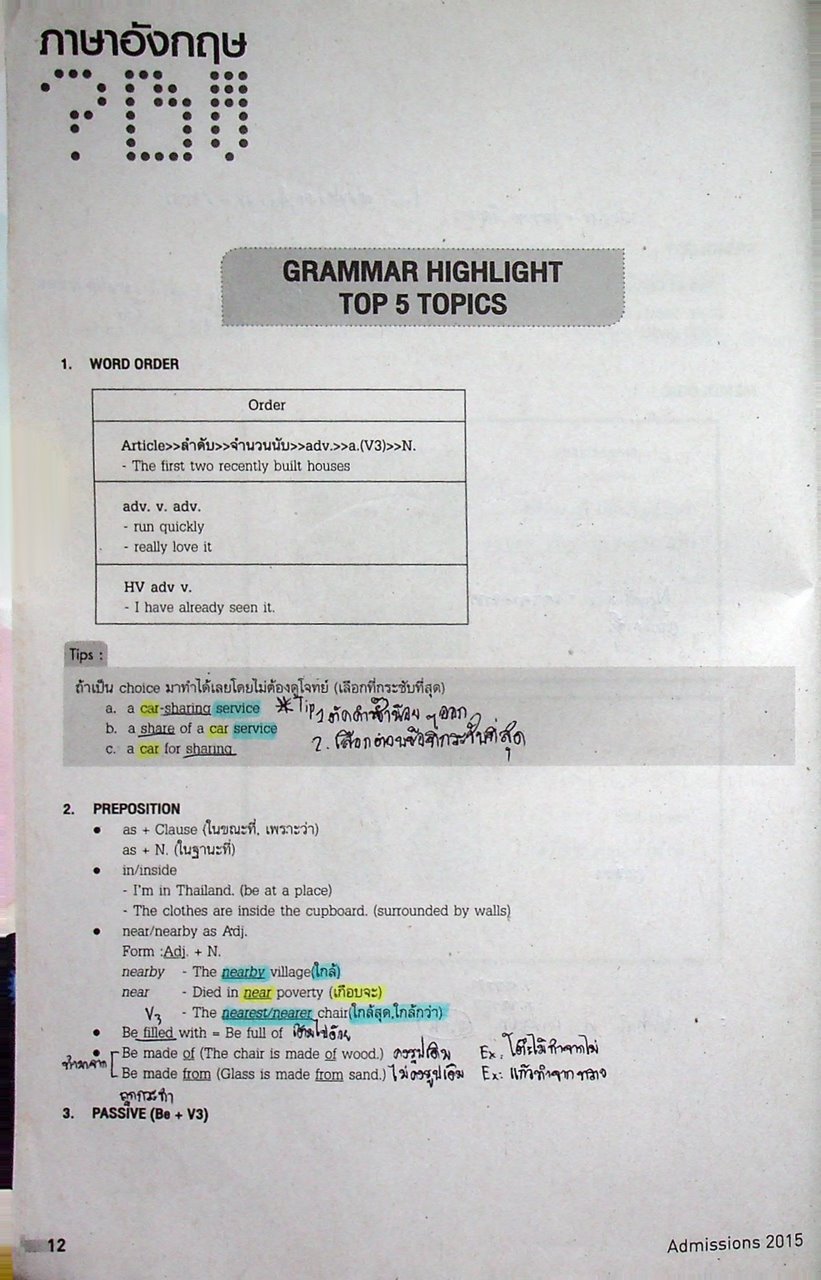 ภาษาอังกฤษ
GRAMMAR HIGHLIGHT
TOP 5 TOPICS
1. WORD ORDER
Order
Article>>ลำดับ>>จำนวนนับ>>adv.>>a.(V3)>>N.
- The first two recently built houses
adv. v. adv.
- run quickly
- really love it
HV adv v.
- I have already seen it.
Tips :
ถ้าเป็น choice มาทำได้เลยโดยไม่ต้องดูโจทย์ (เลือกที่กระชับที่สุด)
a. a car-sharing service * Tip 1 ตัดคำซ้ำน้อย ๆ ออก
b. a share of a car service
2. เลือกตอบข้อที่กระชับที่สุด
c. a car for sharing
2. PREPOSITION
• as + Clause (ในขณะที่, เพราะว่า)
as + N. (ในฐานะที่)
• in/inside
- I'm in Thailand. (be at a place)
- The clothes are inside the cupboard. (surrounded by walls)
• near/nearby as Adj.
Form :Adj. + N.
nearby - The nearby village(ใกล้)
near - Died in near poverty (เกือบจะ)
- The nearest/nearer chair(ใกล้สุด,ใกล้กว่า)
V3
• Be filled with = Be full of เต็มไปด้วย
• Be made of (The chair is made of wood.) คงรูปเดิม Ex: โต๊ะไม้ทำจากไม้
ทำมาจาก
Be made from (Glass is made from sand.) ไม่คงรูปเดิม Ex: แก้วทำจากทราย
ถูกกระทำ
3. PASSIVE (Be + V3)
12
Admissions 2015